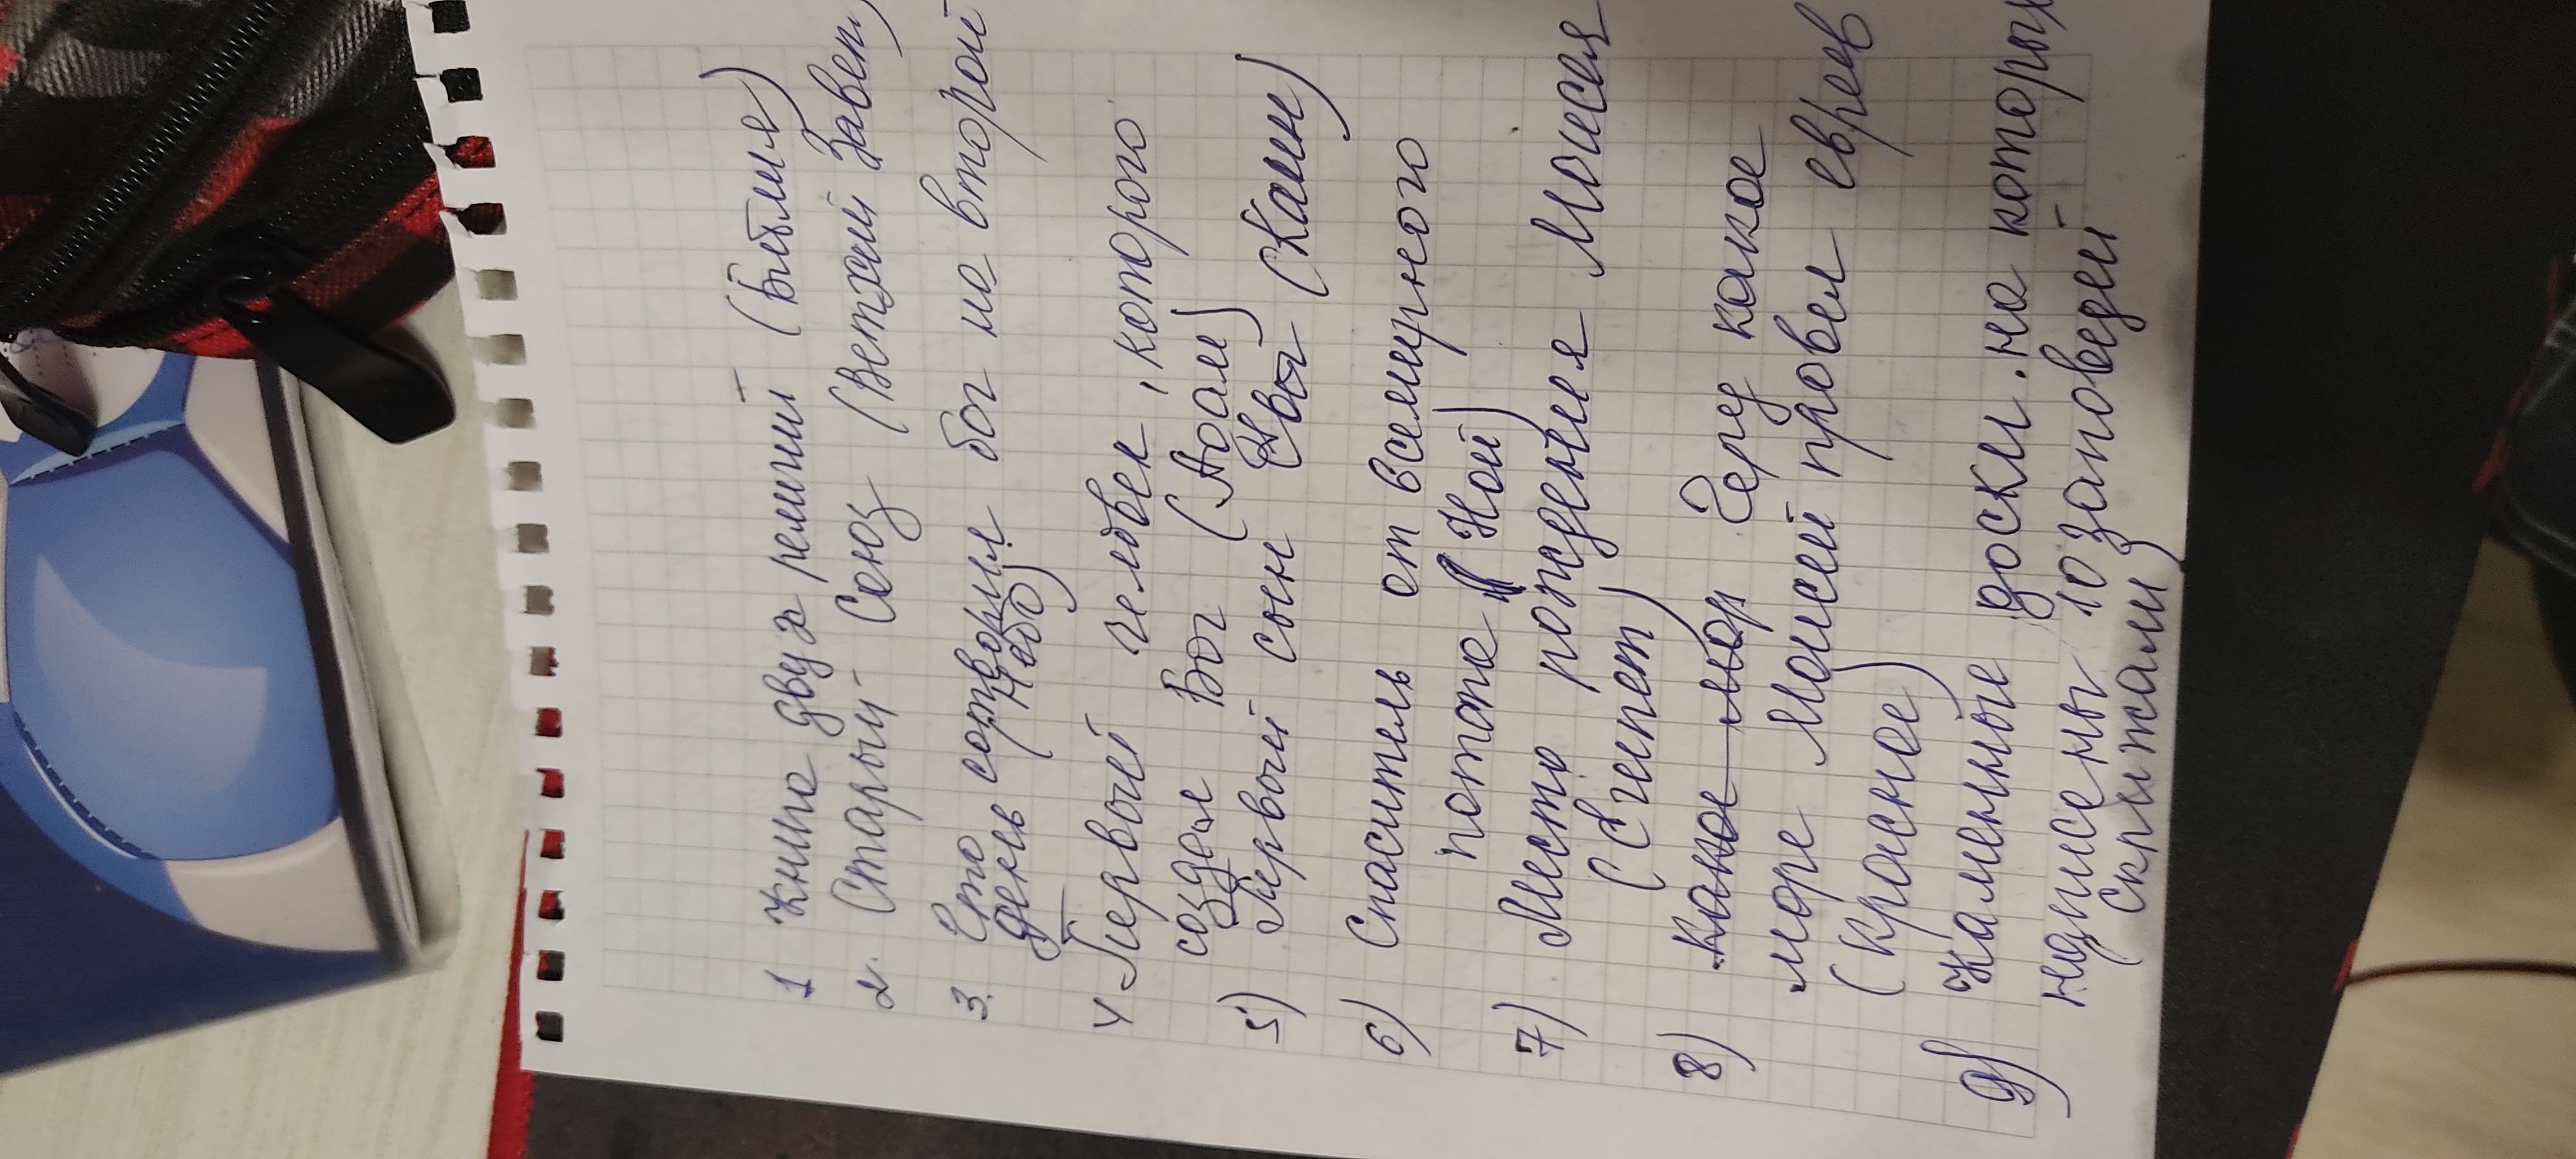 1 Книга двух религий (Библия)
2. Старый Союз (Ветхий Завет)
3. Что сотворил бог на второй
день (Небо)
4 Первый человек, которого
создал Бог (Адам)
5) Первый сын Евы (Каин)
6) Спаситель от всемирного
потопа (Ной)
7) Место рождения Моисея
(Египет)
8) Какое мор Через какое
море Моисей провел евреев
(красное)
9) Каменные доски. на которых
написаны 10 заповедей
скрижали)